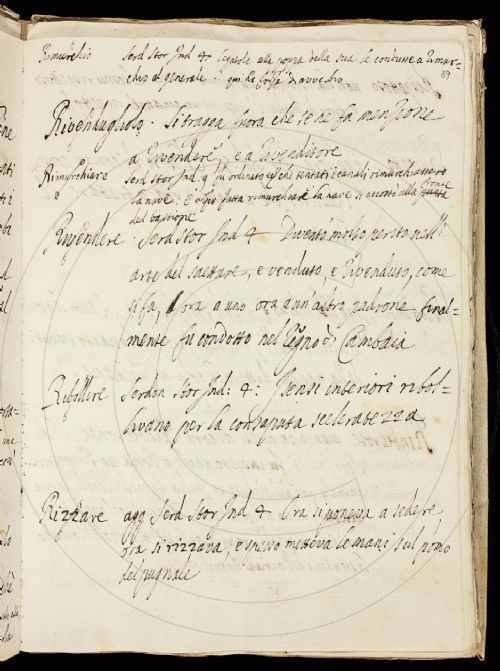 Rimurchio Serd Stor Ind 4 legarle alla poppa della sua le condusse a Rimur-
chio al generale: qui la Cr. à avverbio
89
Rivendugliolo. Si tragga fuora che se ne fa menzione
a Rivendere, e a Rivenditore
Rimurchiare Serd Stor Ind 4 fu ordinato che tentati i canali rimurchiassero
la nave: e dipoi fatta rimurchiare la nave si accostò alla fronte
del bastione
Rivendere Serd Stor Ind 4 Diventò molto perito nell'
arte del saettare, e venduto, e Rivenduto, come
si fa, ora a uno ora a un'altro padrone final-
mente fu condotto nel Regno di Cambaia
Ribollire Serdon Stor Ind: 4: I sensi interiori ribol-
livano per la consaputa scelratezza
Rizzare agg Serd Stor Ind 4 Ora si poneva a sedere
ora si rizzava, e spesso metteva le mani sul pomo
del pugnale